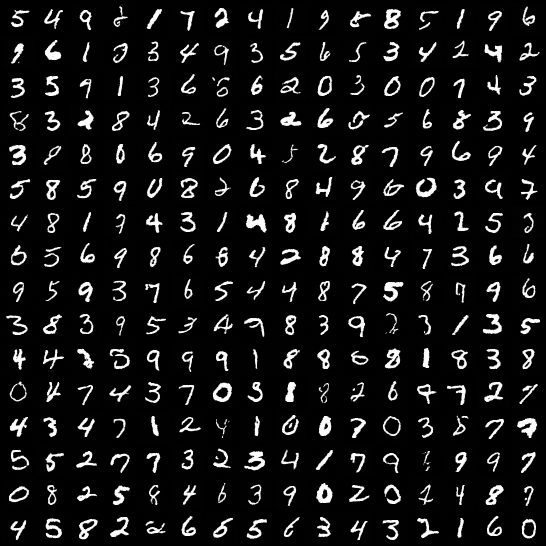 5 4 9 2 1 7 2 4 1 9 8 8 5 1 9 6
9 6 1 3 3 4 9 3 5 6 5 3 4 2 4 2
3 5 9 1 3 6 5 6 2 0 3 0 0 7 4 3
8 3 2 8 4 2 6 3 2 6 0 5 6 8 3 9
3 8 8 0 6 9 0 4 5 2 8 7 9 6 9 4
5 8 5 9 0 8 2 6 8 4 9 6 0 3 9 7
4 8 1 7 4 3 1 4 8 1 6 6 4 2 5 3
6 5 6 9 8 6 8 4 2 8 8 4 7 3 6 6
9 5 9 3 7 6 5 4 4 8 7 5 8 7 9 6
3 8 3 9 5 3 4 7 8 3 9 2 3 1 3 5
4 4 2 5 9 9 9 1 8 8 6 8 1 8 3 8
0 4 7 4 3 7 0 3 8 8 2 6 9 7 2 7
4 3 4 7 1 2 4 1 0 0 7 0 3 8 7 7
5 5 2 7 7 3 2 3 4 1 7 9 9 9 7
0 8 2 5 8 4 6 3 9 0 2 0 1 4 8 7
4 5 8 2 2 6 5 5 6 3 4 3 2 1 6 0